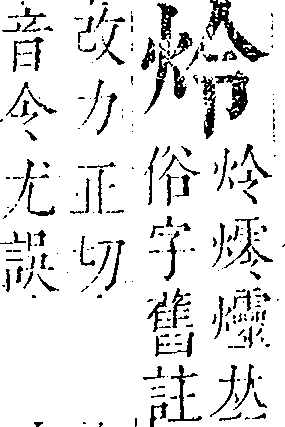 炩
炩燯爧𠀤
俗字舊註
改力正切
音令尤誤